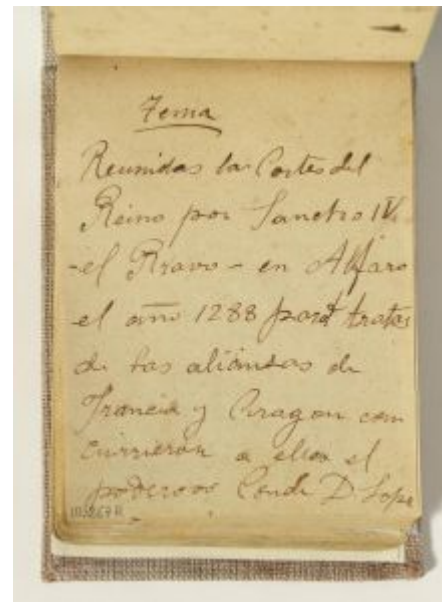 Tema
Reunidas las Cortes del
Reino por Sancho IV
-el Bravo- en Alfaro
el año 1288 para tratar
de las alianzas de
Francia y Aragon con
currieron a ellas el
poderoso Conde D Lope